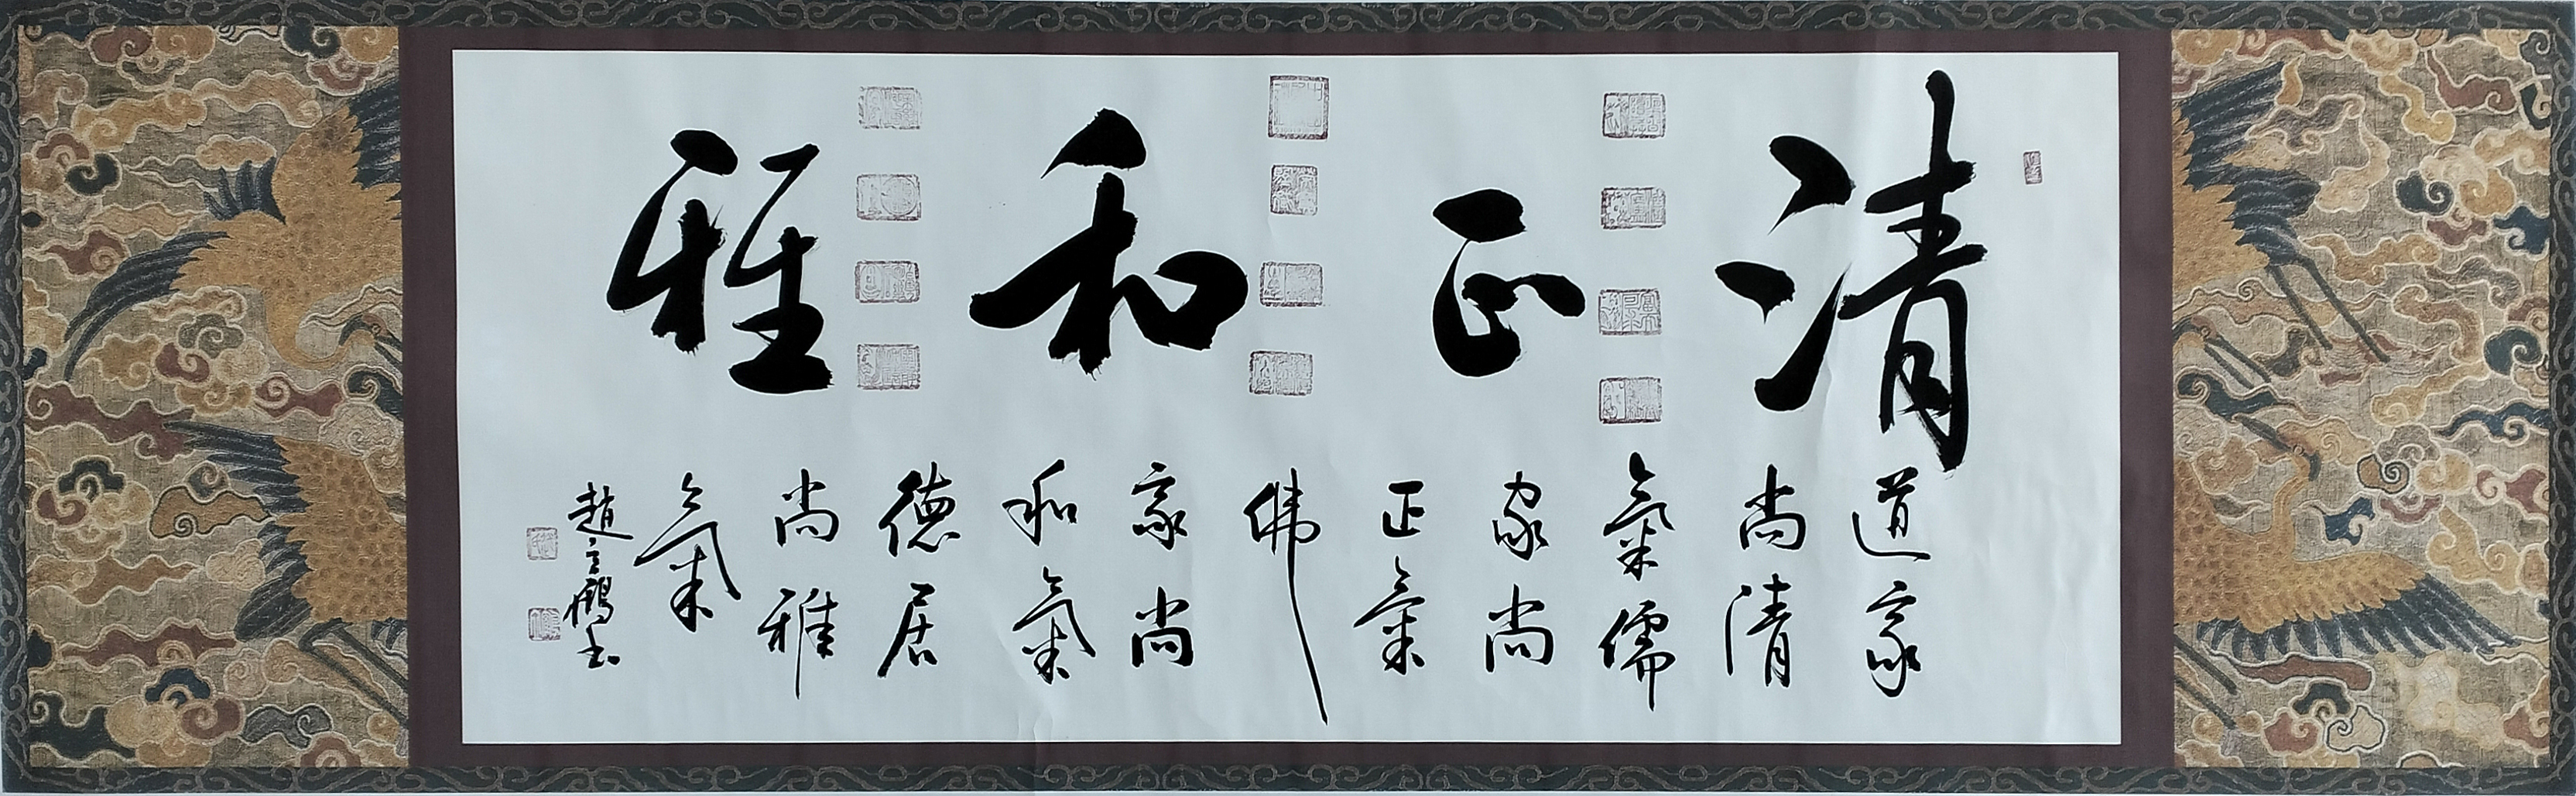 清正和雅
道家
尚清
氣儒
家尚
正氣
佛
家尚
和氣
德居
尚雅
氣
趙